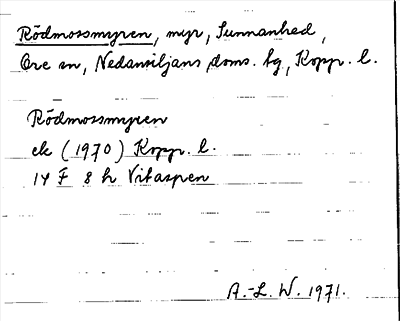 Rödmossmyren, myr, Sunnanhed,
Ore sn, Nedansiljans doms. hg, Kopp. l.
Rödmossmyren
ek (1970) Kopp. l.
14 F 8 h Vitaspen
A.-L. W. 1971.